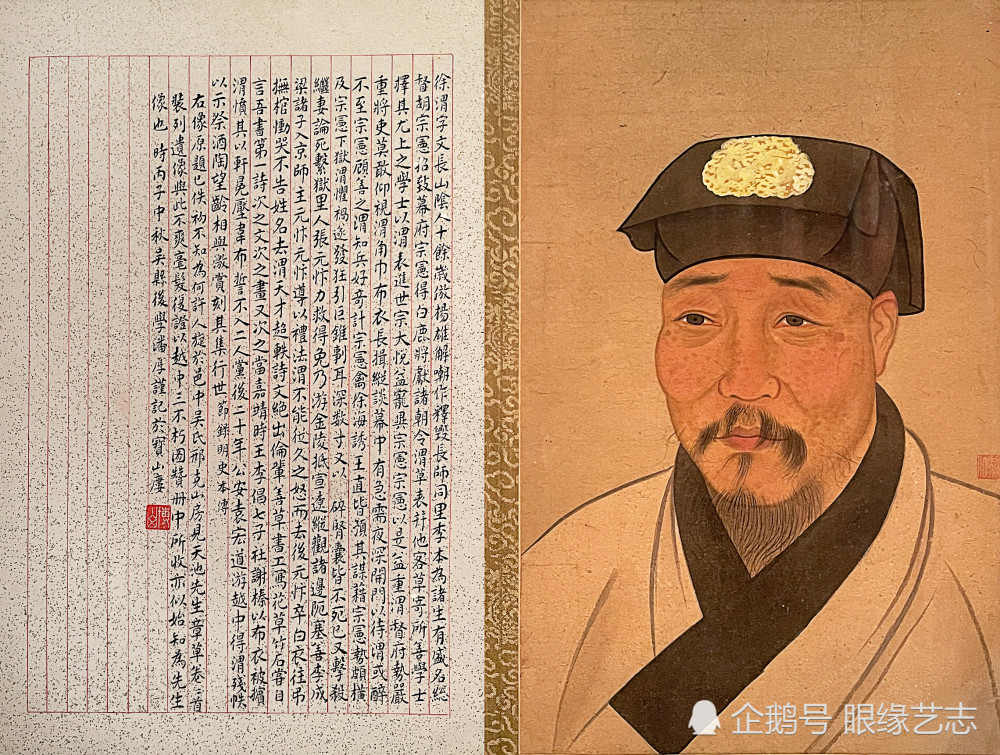 徐渭字文長山陰人十餘歲倣楊雄解嘲作釋毀長師同里季本為諸生有盛名總
督胡宗憲招致幕府宗憲得白鹿將獻諸朝令渭草表幷他客草寄所善學士
擇其尤上之學士以渭表進世宗大悅益寵異宗憲宗憲以是益重渭督府勢嚴
重將吏莫敢仰視渭角巾布衣長揖縱談幕中有急需夜深開門以待渭或醉
不至宗憲顧善之渭知兵好奇計宗憲禽徐海誘王直皆預其謀藉宗憲勢頗橫
及宗憲下獄渭懼禍遂發狂引巨錐剚耳深數寸又以 碎腎囊皆不死已又擊殺
繼妻論死繫獄里人張元忭力救得免乃游金陵抵宣遼縱觀諸邊阨塞善李成
梁諸子入京師主元忭元忭導以禮法渭不能從久之怒而去後元忭卒白衣往弔
撫棺慟哭不告姓名去渭天才超軼詩文絕出倫輩善草書工寫花草竹石嘗自
言吾書第一詩次之文次之畫又次之當嘉靖時王李倡七子社謝榛以布衣被擯
渭憤其以軒冕壓韋布誓不入二人黨後二十年公安袁宏道游越中得渭殘帙
以示祭酒陶望齡相與激賞刻其集行世 節錄明史本傳
右像原題已佚初不知為何許人旋於邑中吳氏邢克山房見天池先生章草卷二首
裝列遺像與此不爽毫髮復證以越中三不朽圖贊冊中所收亦似始知為先生
像也 時丙子中秋吳縣後學潘厚謹記於寶山廔
企鹅号 眼缘艺志